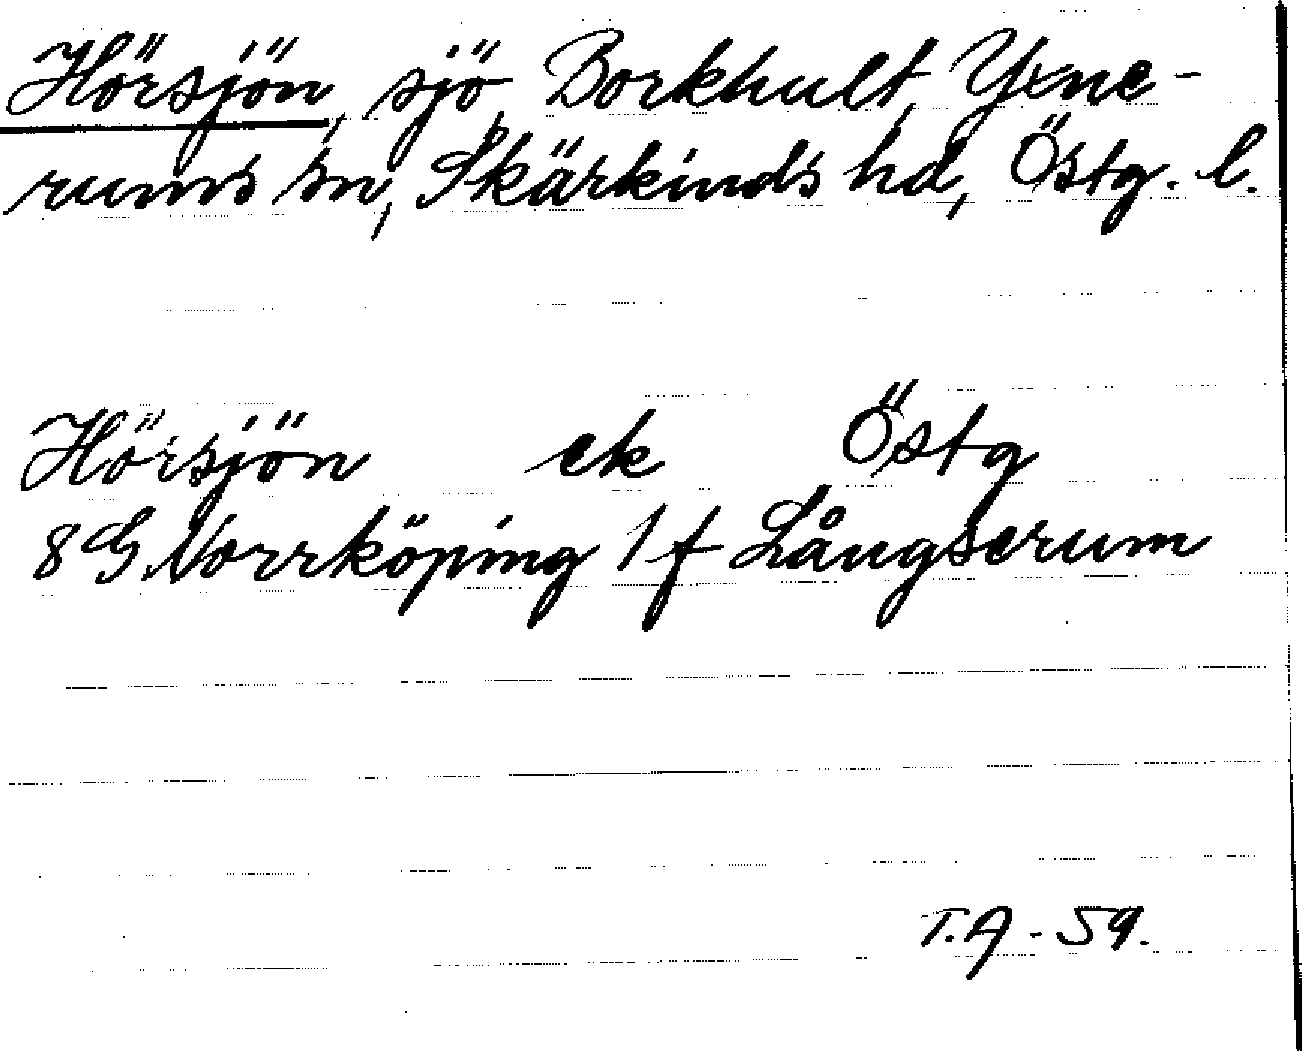 Hörsjön, sjö, Borkhult, Yxne-
rums sn, Skärkinds hd, Östg. l.
Hörsjön ek Östg
8G Norrköping 1f Långserum
T.A - 59.